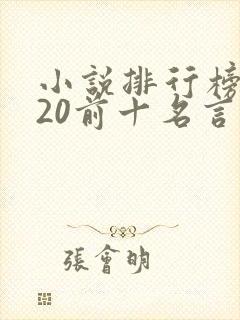 小說排行榜
20前十名言
張會明